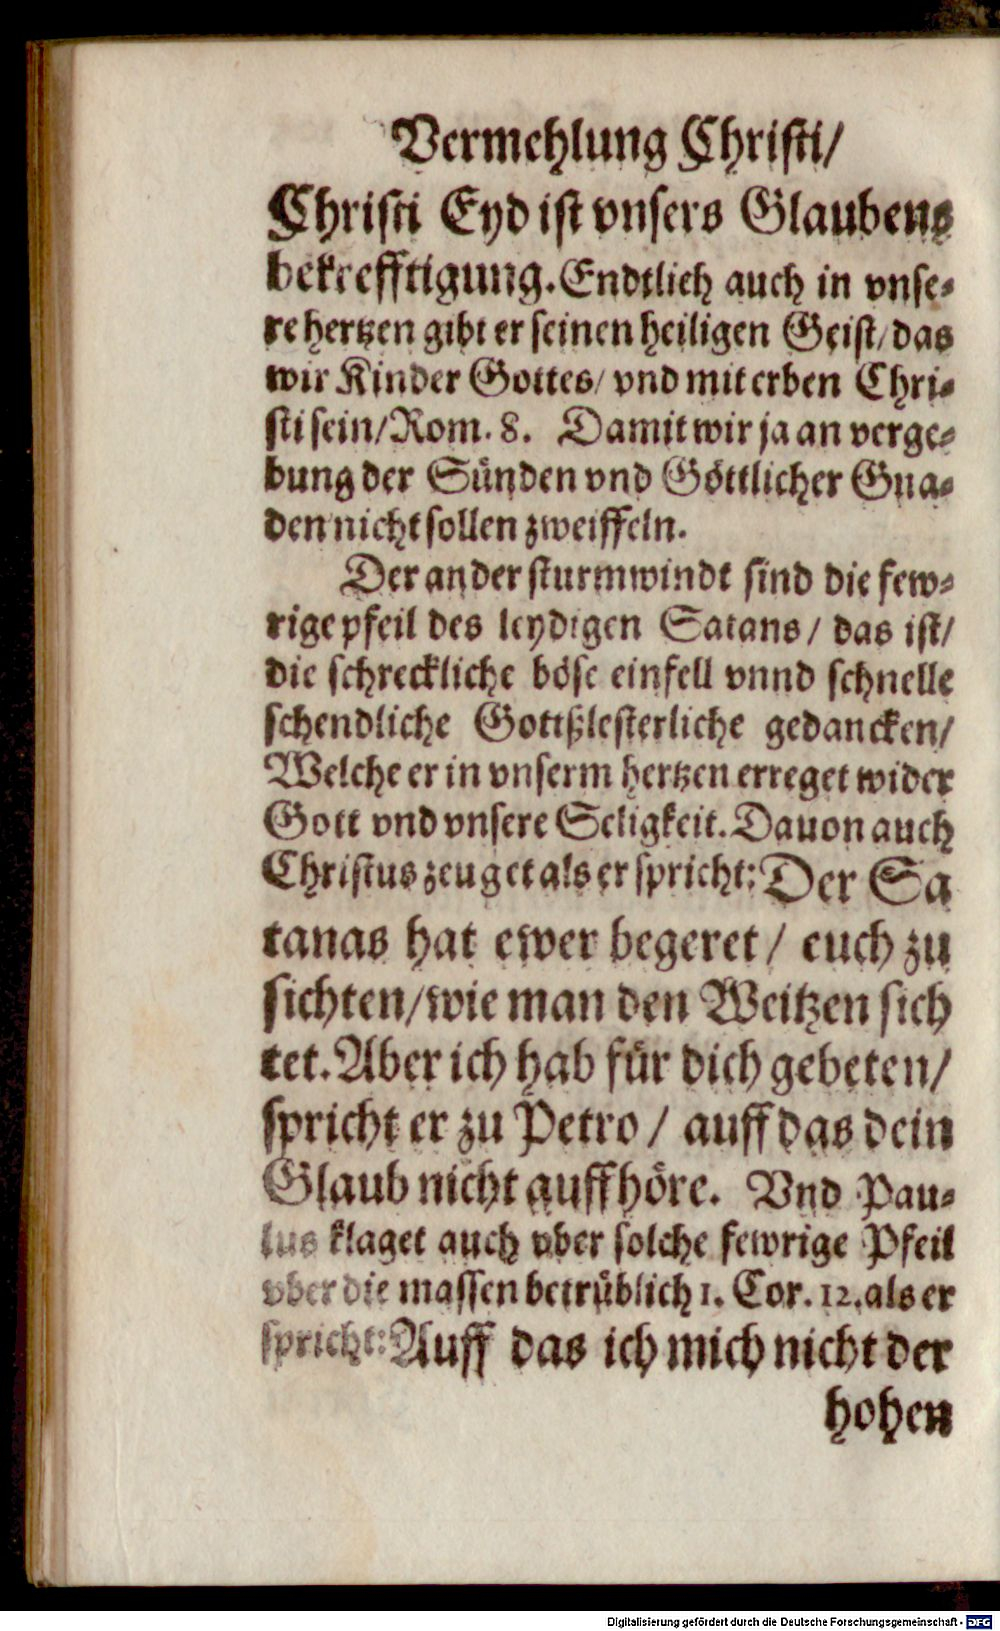 Vermehlung Christi/
Christi Eyd ist vnsers Glaubens
bekrefftigung. Endtlich auch in vnse-
re hertzen gibt er seinen heiligen Geist/ das
wir Kinder Gottes/ vnd miterben Chri-
sti sein/ Rom. 8. Damit wir ja an verge-
bung der Sünden vnd Göttlicher Gna-
den nicht sollen zweiffeln.
Der ander sturmwindt sind die few-
rige pfeil des leydigen Satans/ das ist/
die schreckliche böse einfell vnnd schnelle
schendliche Gottßlesterliche gedancken/
Welche er in vnserm hertzen erreget wider
Gott vnd vnsere Seligkeit. Dauon auch
Christus zeuget als er spricht: Der Sa
tanas hat ewer begeret/ euch zu
sichten/ wie man den Weitzen sich
tet. Aber ich hab für dich gebeten/
spricht er zu Petro/ auff das dein
Glaub nicht auffhöre. Vnd Pau-
lus klaget auch vber solche fewrige Pfeil
vber die massen betrüblich 1. Cor. 12. als er
spricht: Auff das ich mich nicht der
hohen
Digitalisierung gefördert durch die Deutsche Forschungsgemeinschaft - DFG